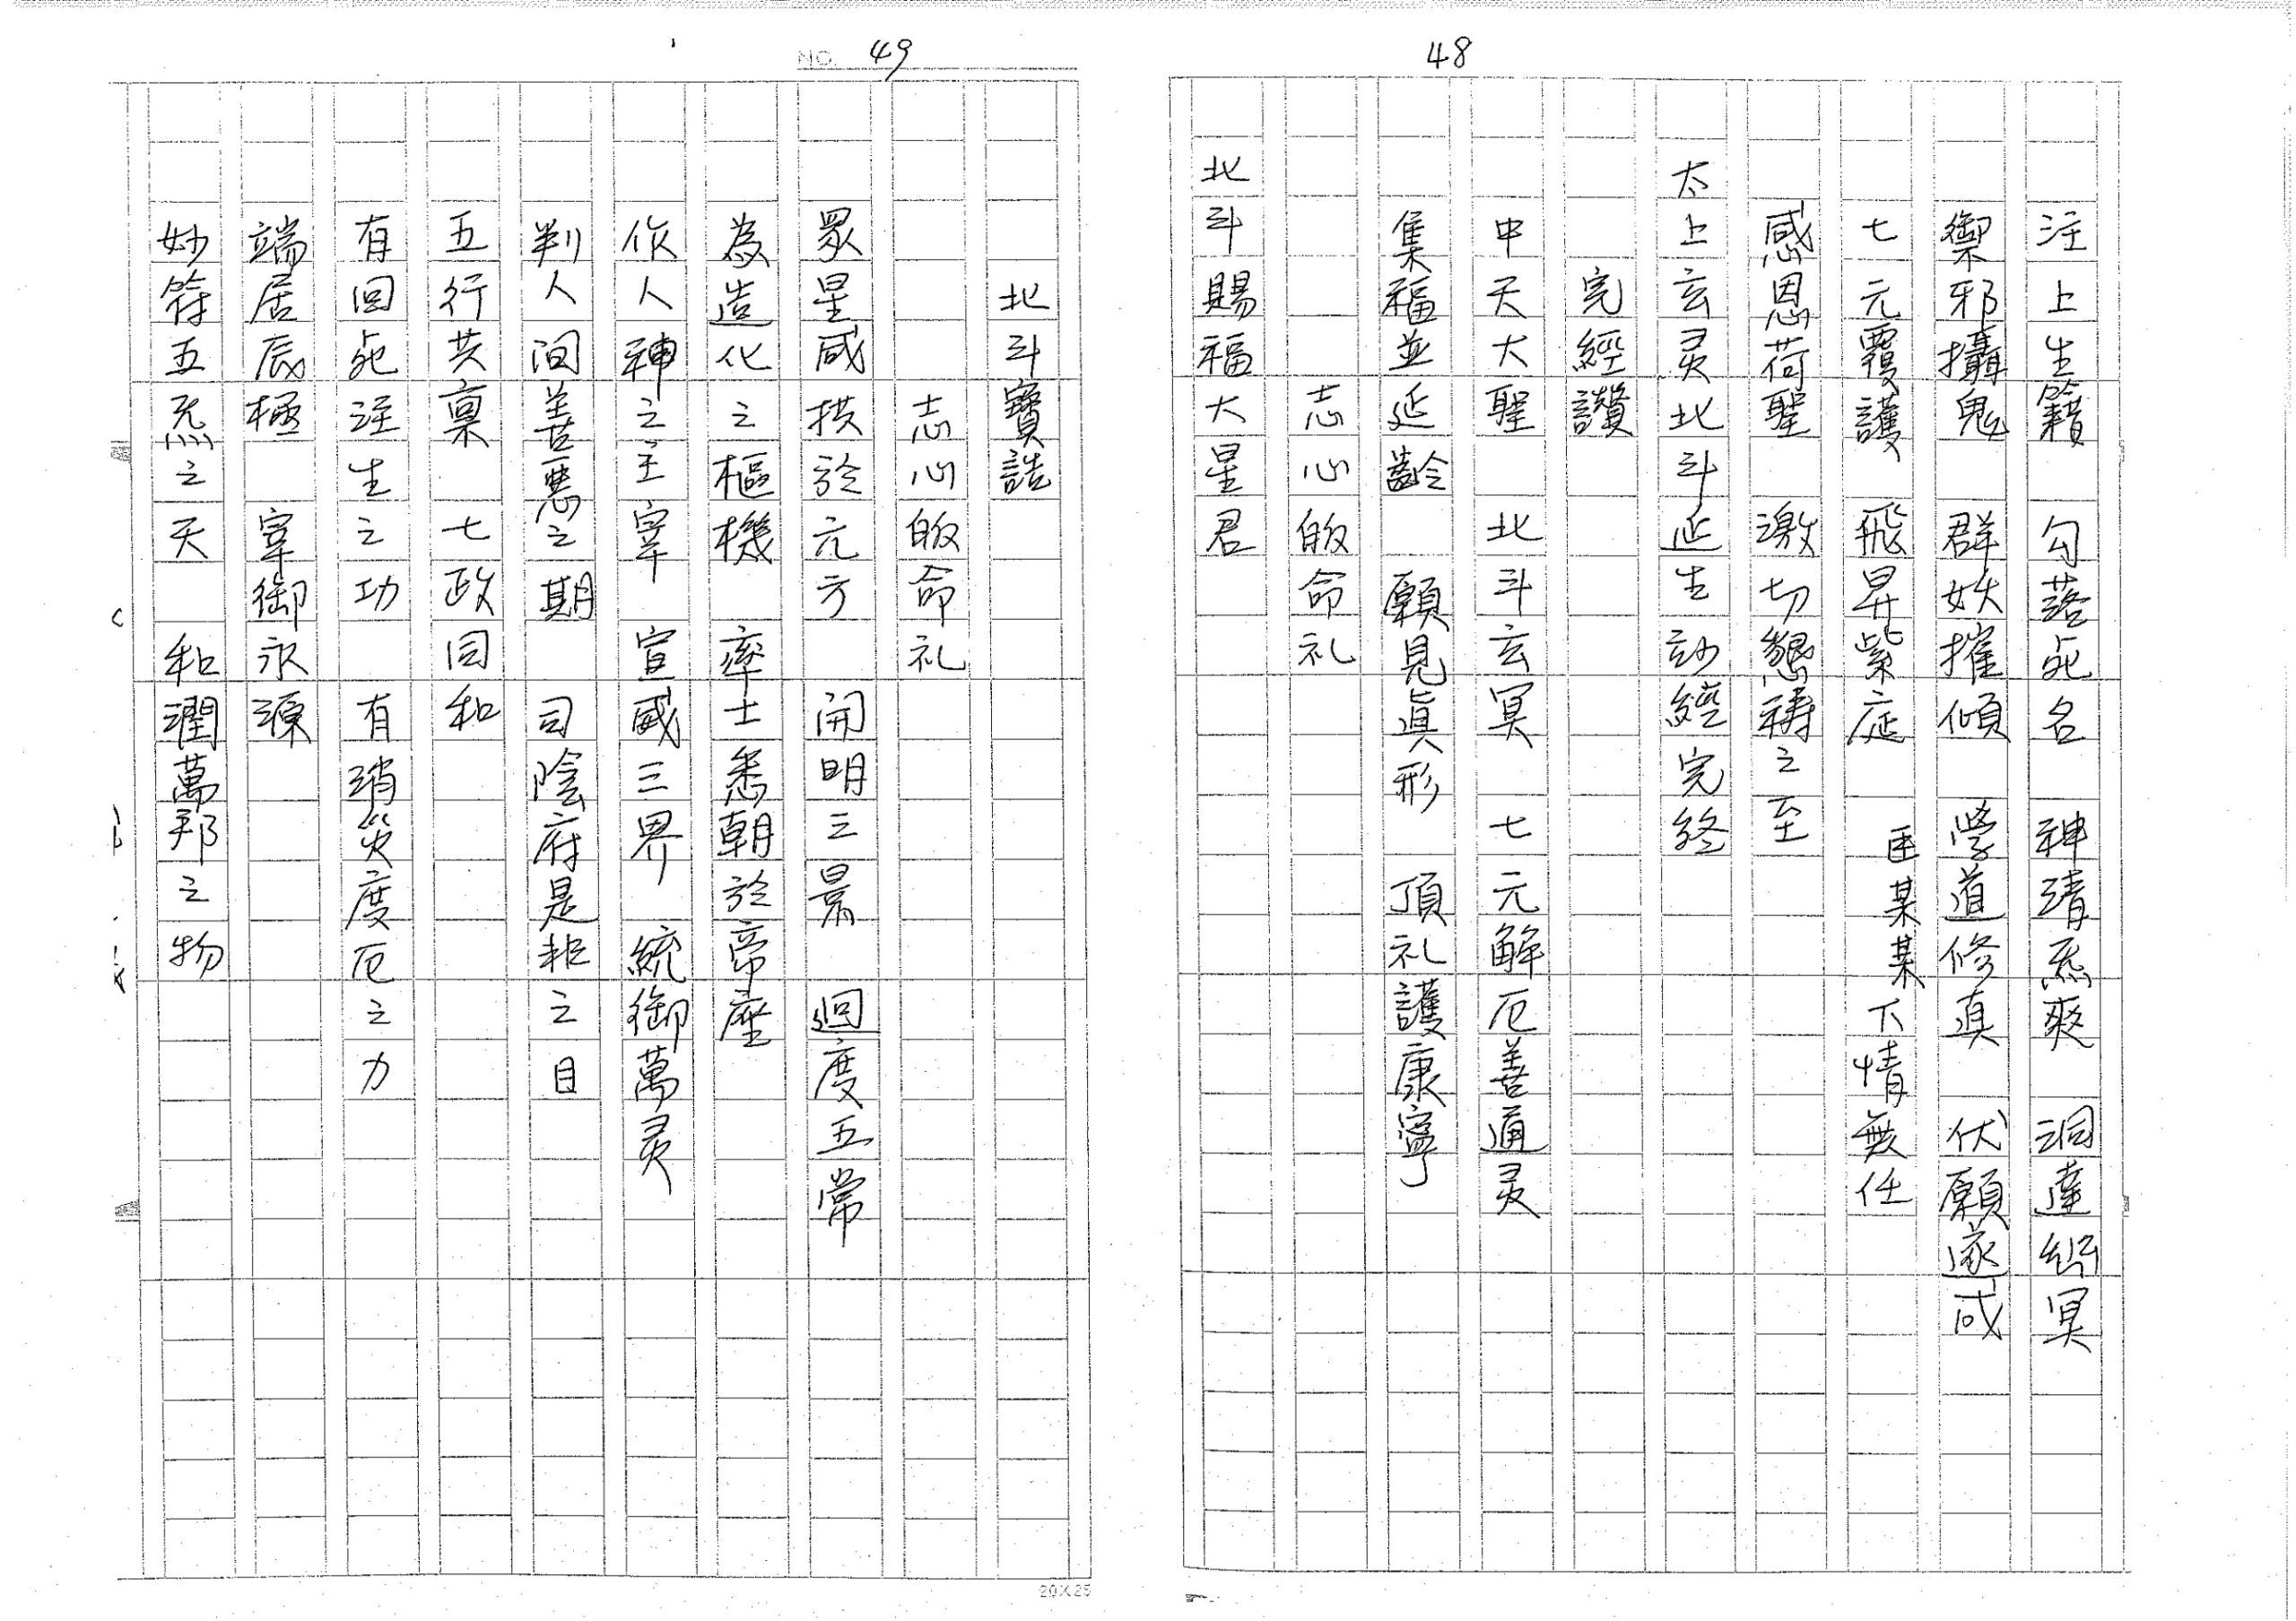 48
注上生籍　勾落死名　神清炁爽　洞達紛冥
禦邪攝鬼　群妖摧傾　學道修真　伏願遂成
七元覆護　飛昇紫庭　臣某某　下情無任
感恩荷聖　激切懇禱之至
太上玄灵北斗延生妙經完終
完經讚
中天大聖　北斗玄冥　七元解厄善通灵
集福並延齡　願見真形　頂礼護康寧
志心皈命礼
北斗賜福大星君
NO. 49
北斗寶誥
志心皈命礼
眾星咸拱於元方　開明三景　迴度五常
為造化之樞機　率士悉朝於帝座
作人神之主宰　宣威三界　統御萬灵
判人間善惡之期　司陰府是非之目
五行共稟　七政同和
有回死注生之功　有消災度厄之力
端居辰極　宰御永源
妙符五炁之天　和潤萬邦之物
20X25